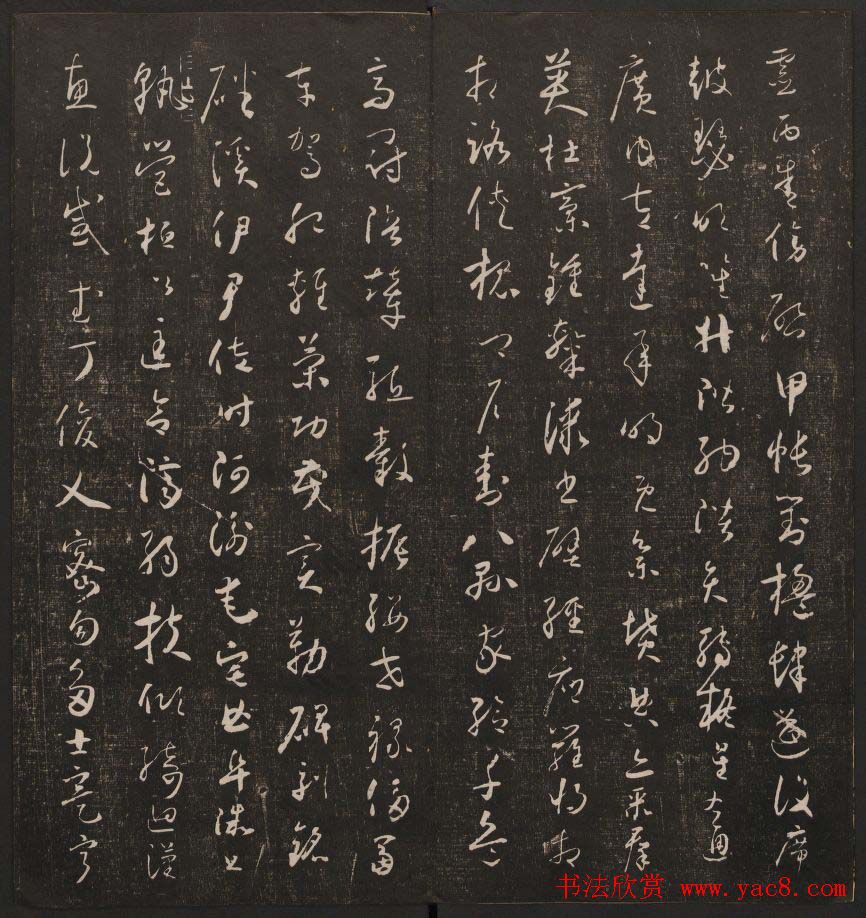 靈丙舍傍啟甲帳對楹肆筵設席
鼓瑟吹笙升階納陛弁轉疑星右通
廣內左達承明既集墳典亦聚群
英杜稾鍾隸漆書壁經府羅將相
相路俠槐卿戶封八縣家給千兵
高冠陪輦驅轂振纓世祿侈富
車駕肥輕策功茂實勒碑刻銘
磻溪伊尹佐時阿衡奄宅曲阜微旦
孰營桓公匡合濟弱扶傾綺迴漢
惠說感武丁俊乂密勿多士寔寧
书法欣赏 www.yac8.com